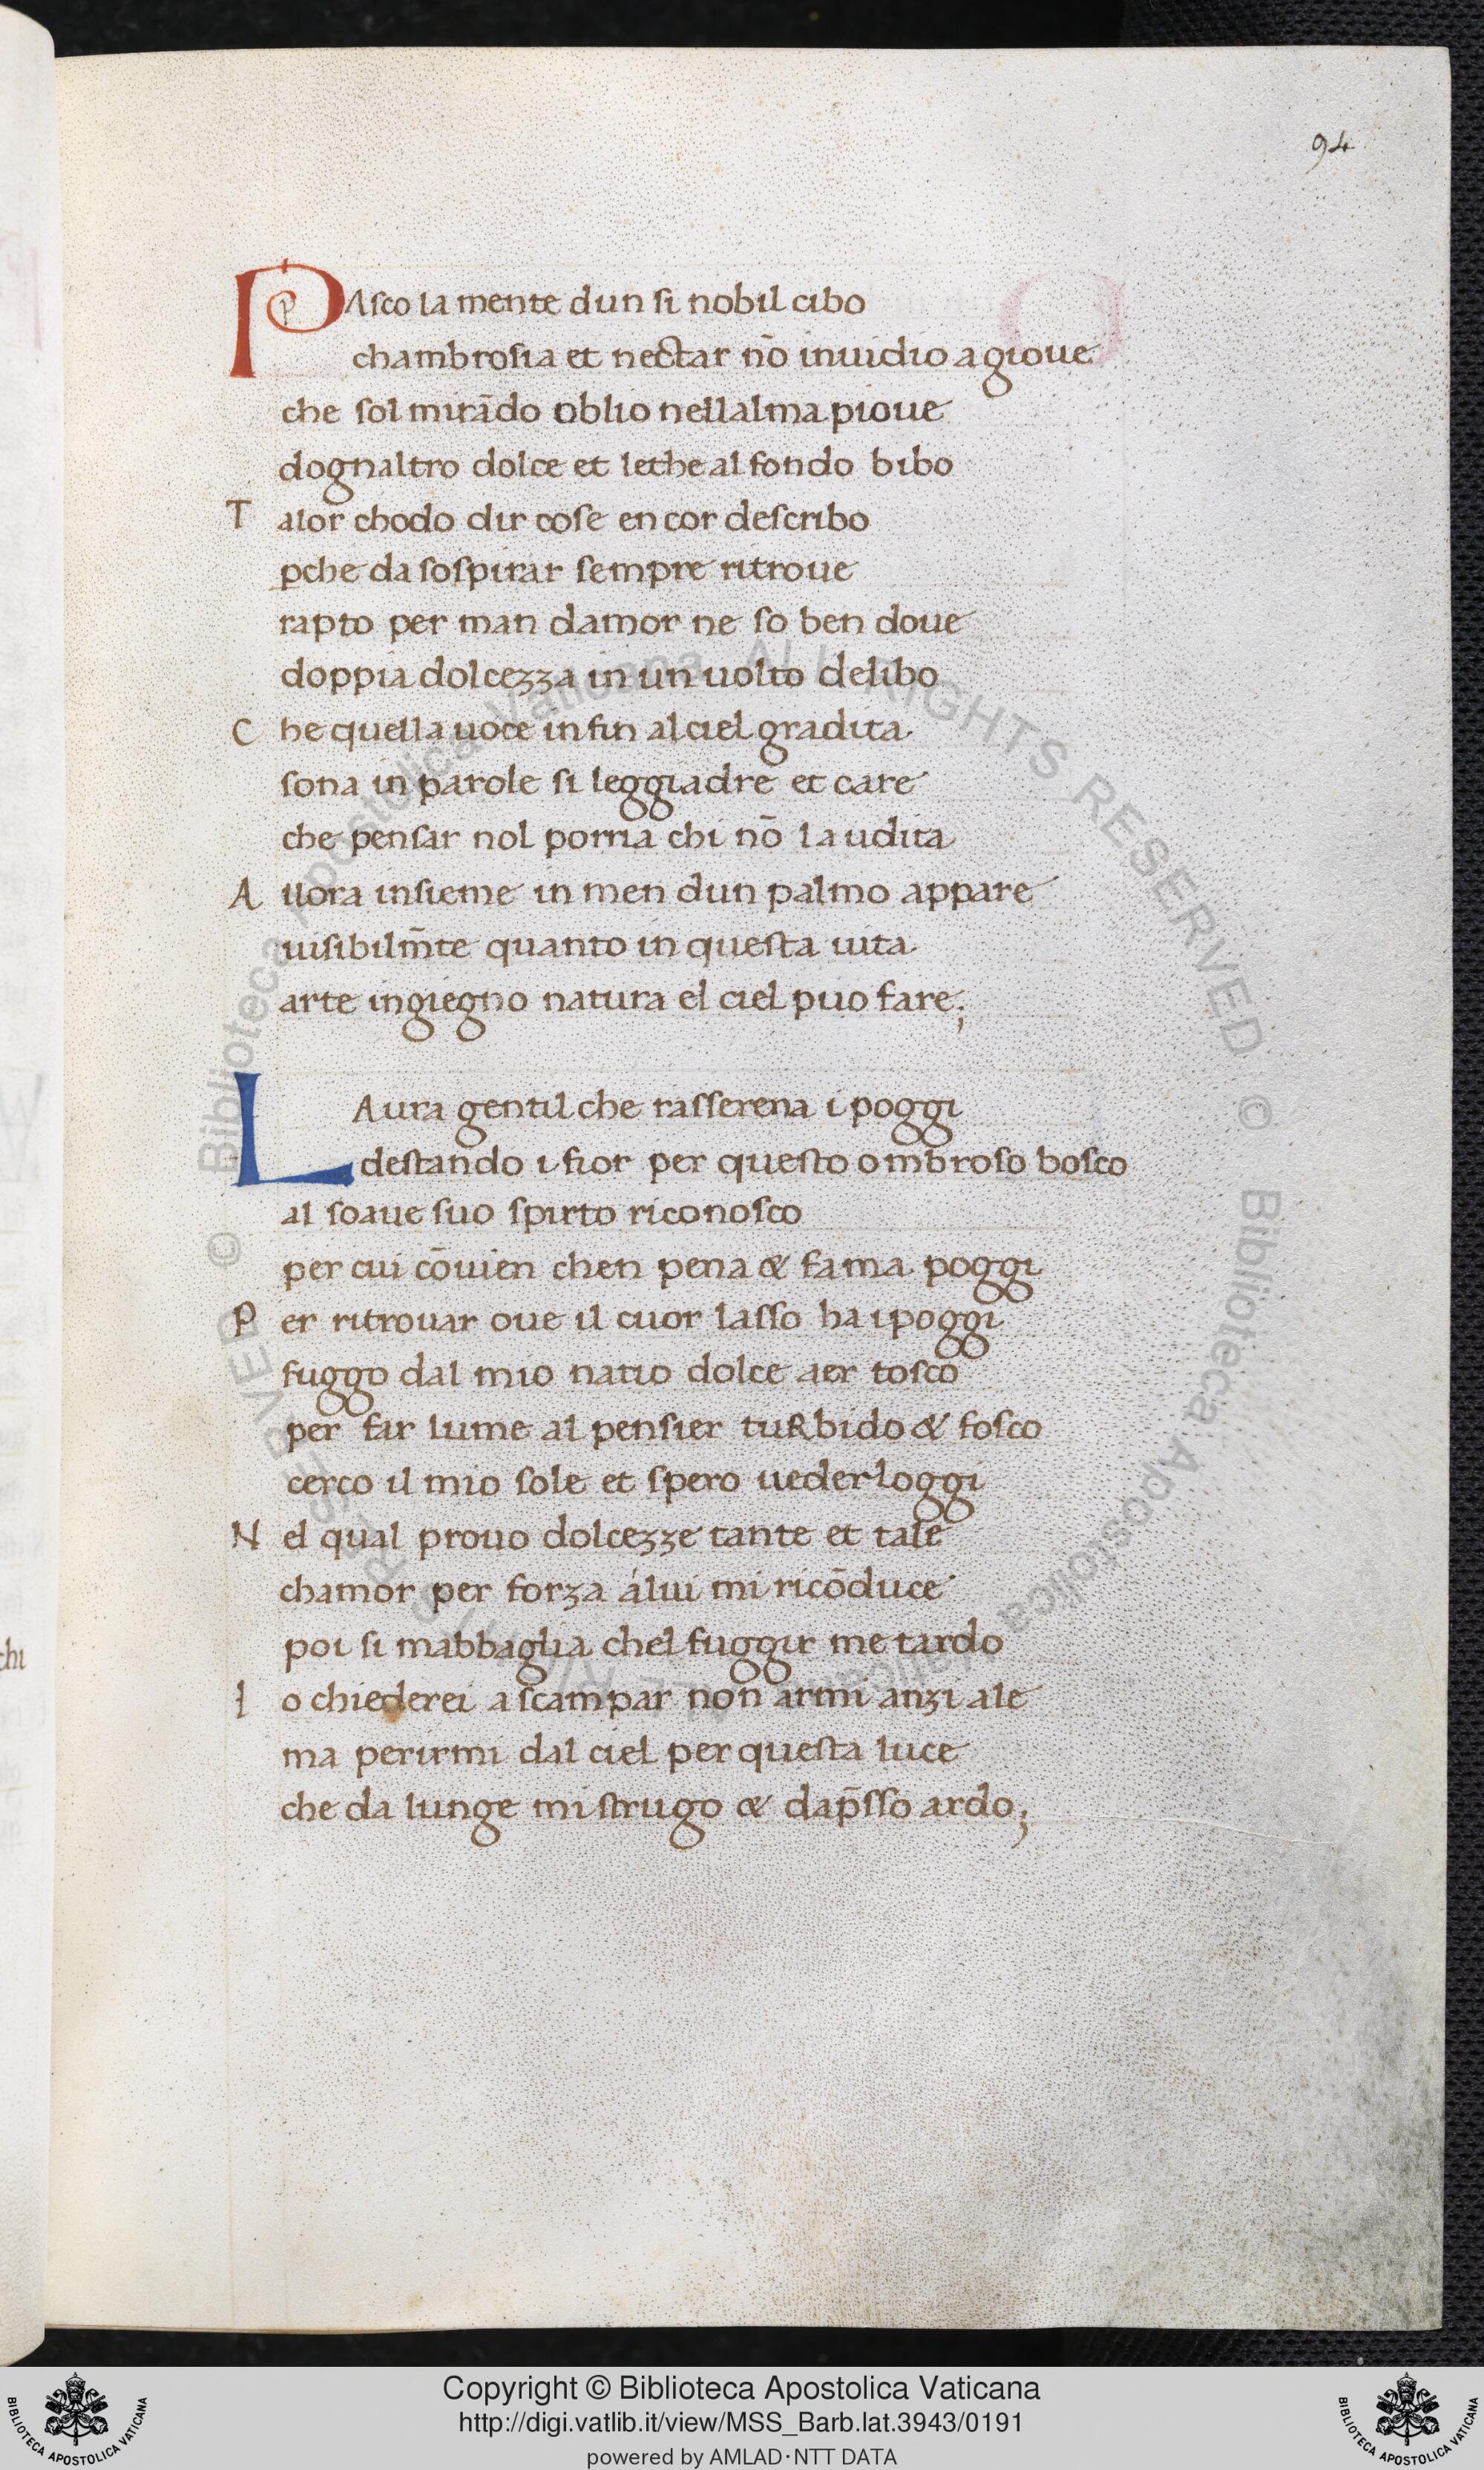 94
PAsco la mente dun si nobil cibo
chambrosia et nectar nō inuidio a gioue
che sol mirādo oblio nellalma pioue
dognaltro dolce et lethe al fondo bibo
Talor chodo dir cose en cor describo
pche da sospirar sempre ritroue
rapto per man damor ne so ben doue
doppia dolcezza in un uolto delibo
Che quella uoce in fin al ciel gradita
sona in parole si leggiadre et care
che pensar nol porria chi nō la udita
Allora insieme in men dun palmo appare
uisibilm̄te quanto in questa uita
arte ingiegno natura el ciel puo fare;
LAura gentil che rasserena i poggi
destando i fior per questo ombroso bosco
al soaue suo spirto riconosco
per cui cōuien chen pena & fama poggi
Per ritrouar oue il cuor lasso ha i poggi
fuggo dal mio natio dolce aer tosco
per far lume al pensier tuRbido & fosco
cerco il mio sole et spero uederloggi
Nel qual prouo dolcezze tante et tale
chamor per forza á lui mi ricōduce
poi si mabbaglia chel fuggir me tardo
Io chiederei a scampar non armi anzi ale
ma perirmi dal ciel per questa luce
che da lunge mi strugo & dap̄sso ardo;
chi
© Biblioteca Apostolica Vaticana ALL RIGHTS RESERVED © Biblioteca Apostolica Vaticana ALL RIGHTS RESERVED
Copyright © Biblioteca Apostolica Vaticana
http://digi.vatlib.it/view/MSS_Barb.lat.3943/0191
powered by AMLAD·NTT DATA
BIBLIOTECA APOSTOLICA VATICANA
BIBLIOTECA APOSTOLICA VATICANA